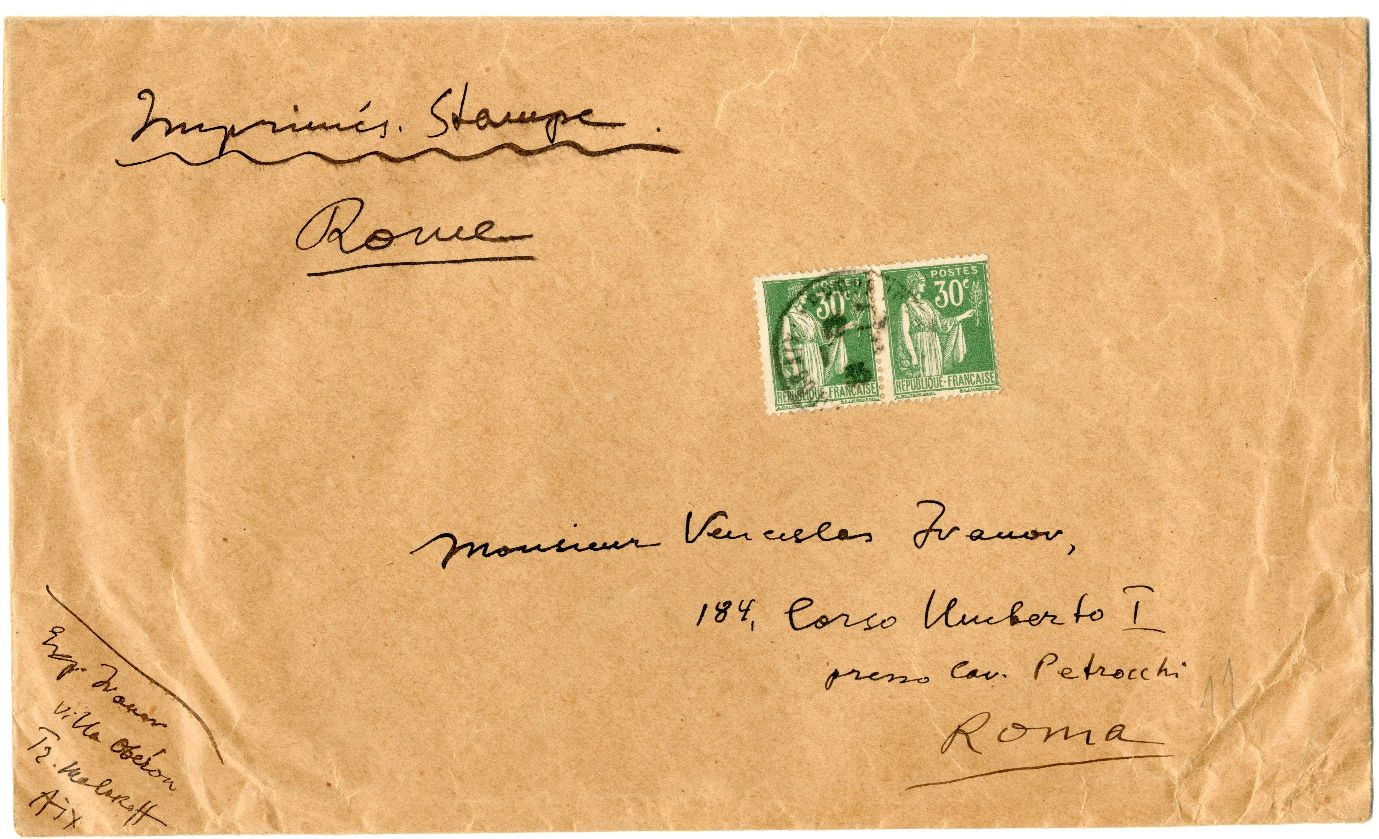 Imprimés. Stampe.
Rome
POSTES
30c
REPUBLIQUE-FRANÇAISE
POSTES
30c
REPUBLIQUE-FRANÇAISE
Monsieur Venceslas Ivanov,
184, Corso Umberto I
presso Cav. Petrocchi
Roma
11
Exp. Ivanov
Villa Obéron
Tr. Malakoff
Aix